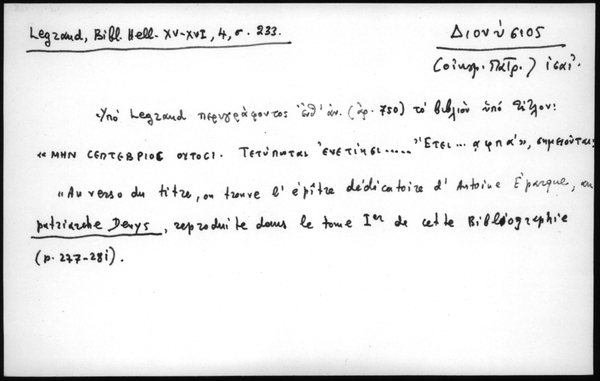 Legrand, Bibl. Hell. XV-XVI, 4, σ. 233.
Διονύσιος
(οἰκουμ. Πατρ.)
Ὑπὸ Legrand περιγράφοντος ἀνθ' ἀν. (ἀρ. 750) τὸ βιβλίον ὑπὸ τίτλον:
« ΜΗΝ ΣΕΠΤΕΒΡΙΟΣ ΟΥΤΟΣΙ. Τετύπωται Ἐνετίῃσι..... Ἔτει... αφπα', σημειοῦται:
"Au verso du titre, on trouve l'épître dédicatoire d'Antoine Éparque, au
patriarche Denys, reproduite dans le tome Ier de cette Bibliographie
(p. 277-281).